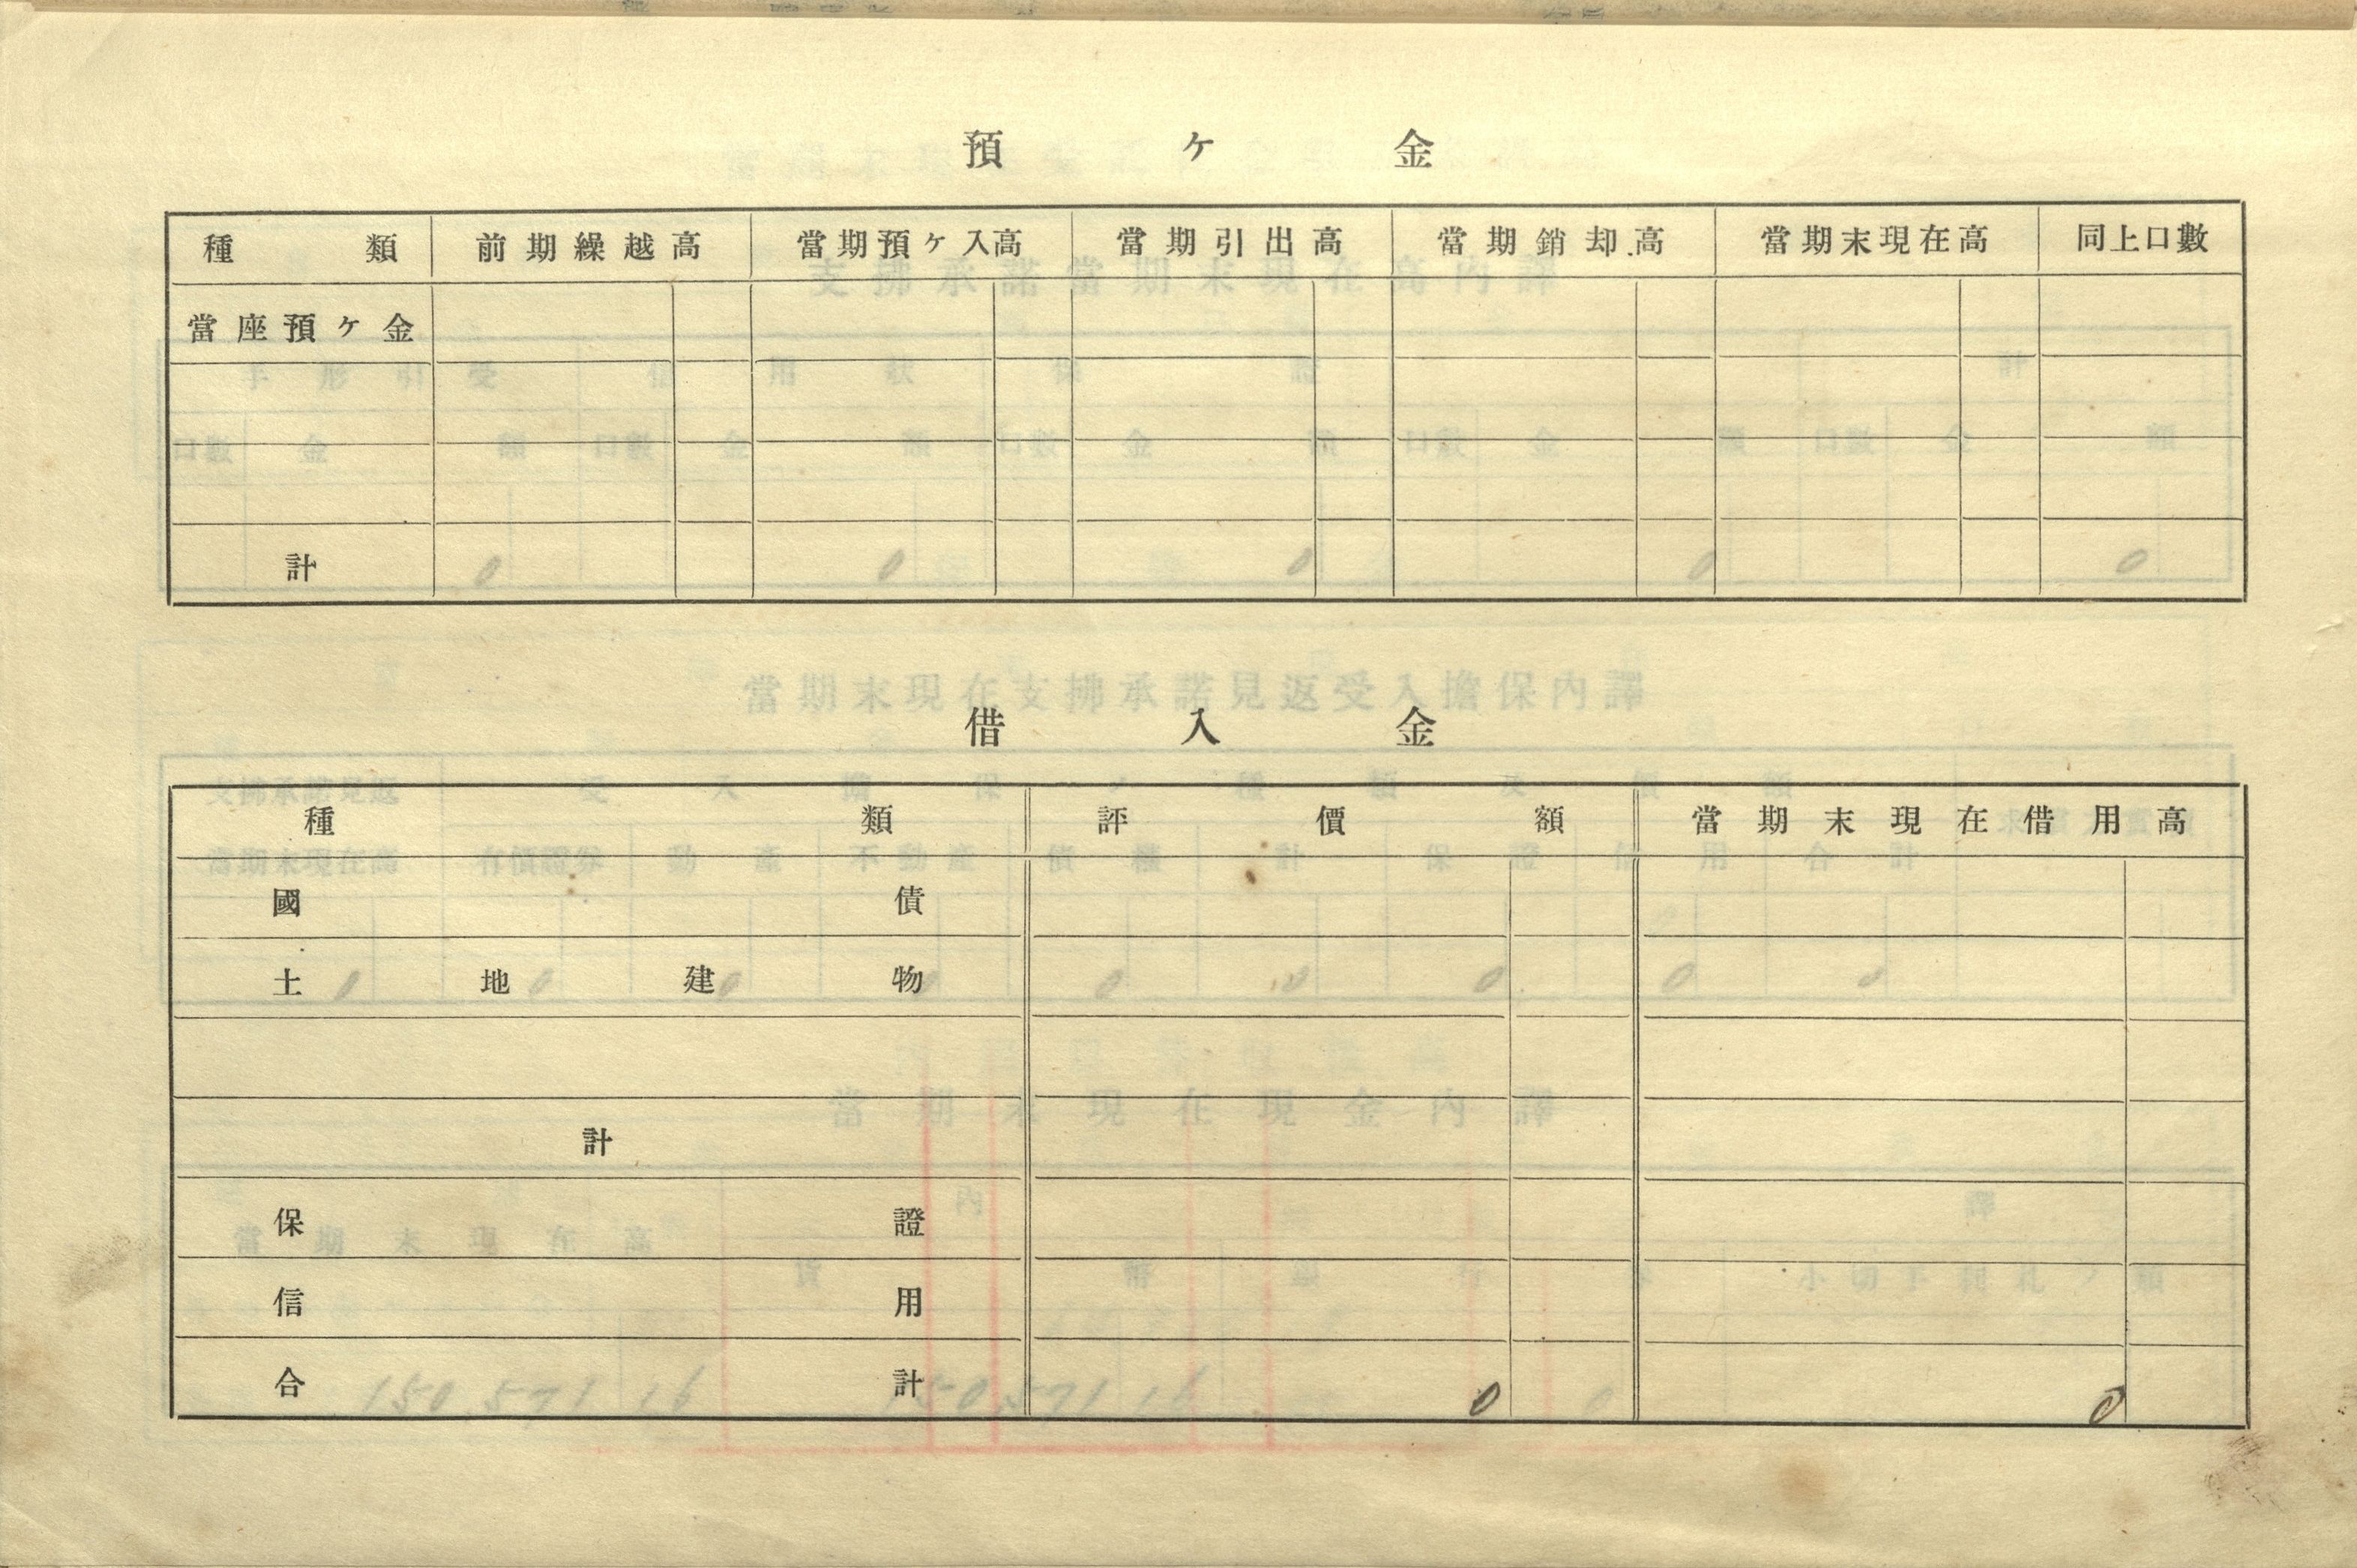 預ヶ金
種類 前期繰越高 當期預ヶ入高 當期引出高 當期銷却高 當期末現在高 同上口數
當座預ヶ金
計 0 0 0 0 0
借入金
種類 評價額 當期末現在借用高
國債
土地建物
計
保證
信用
合計 0 0